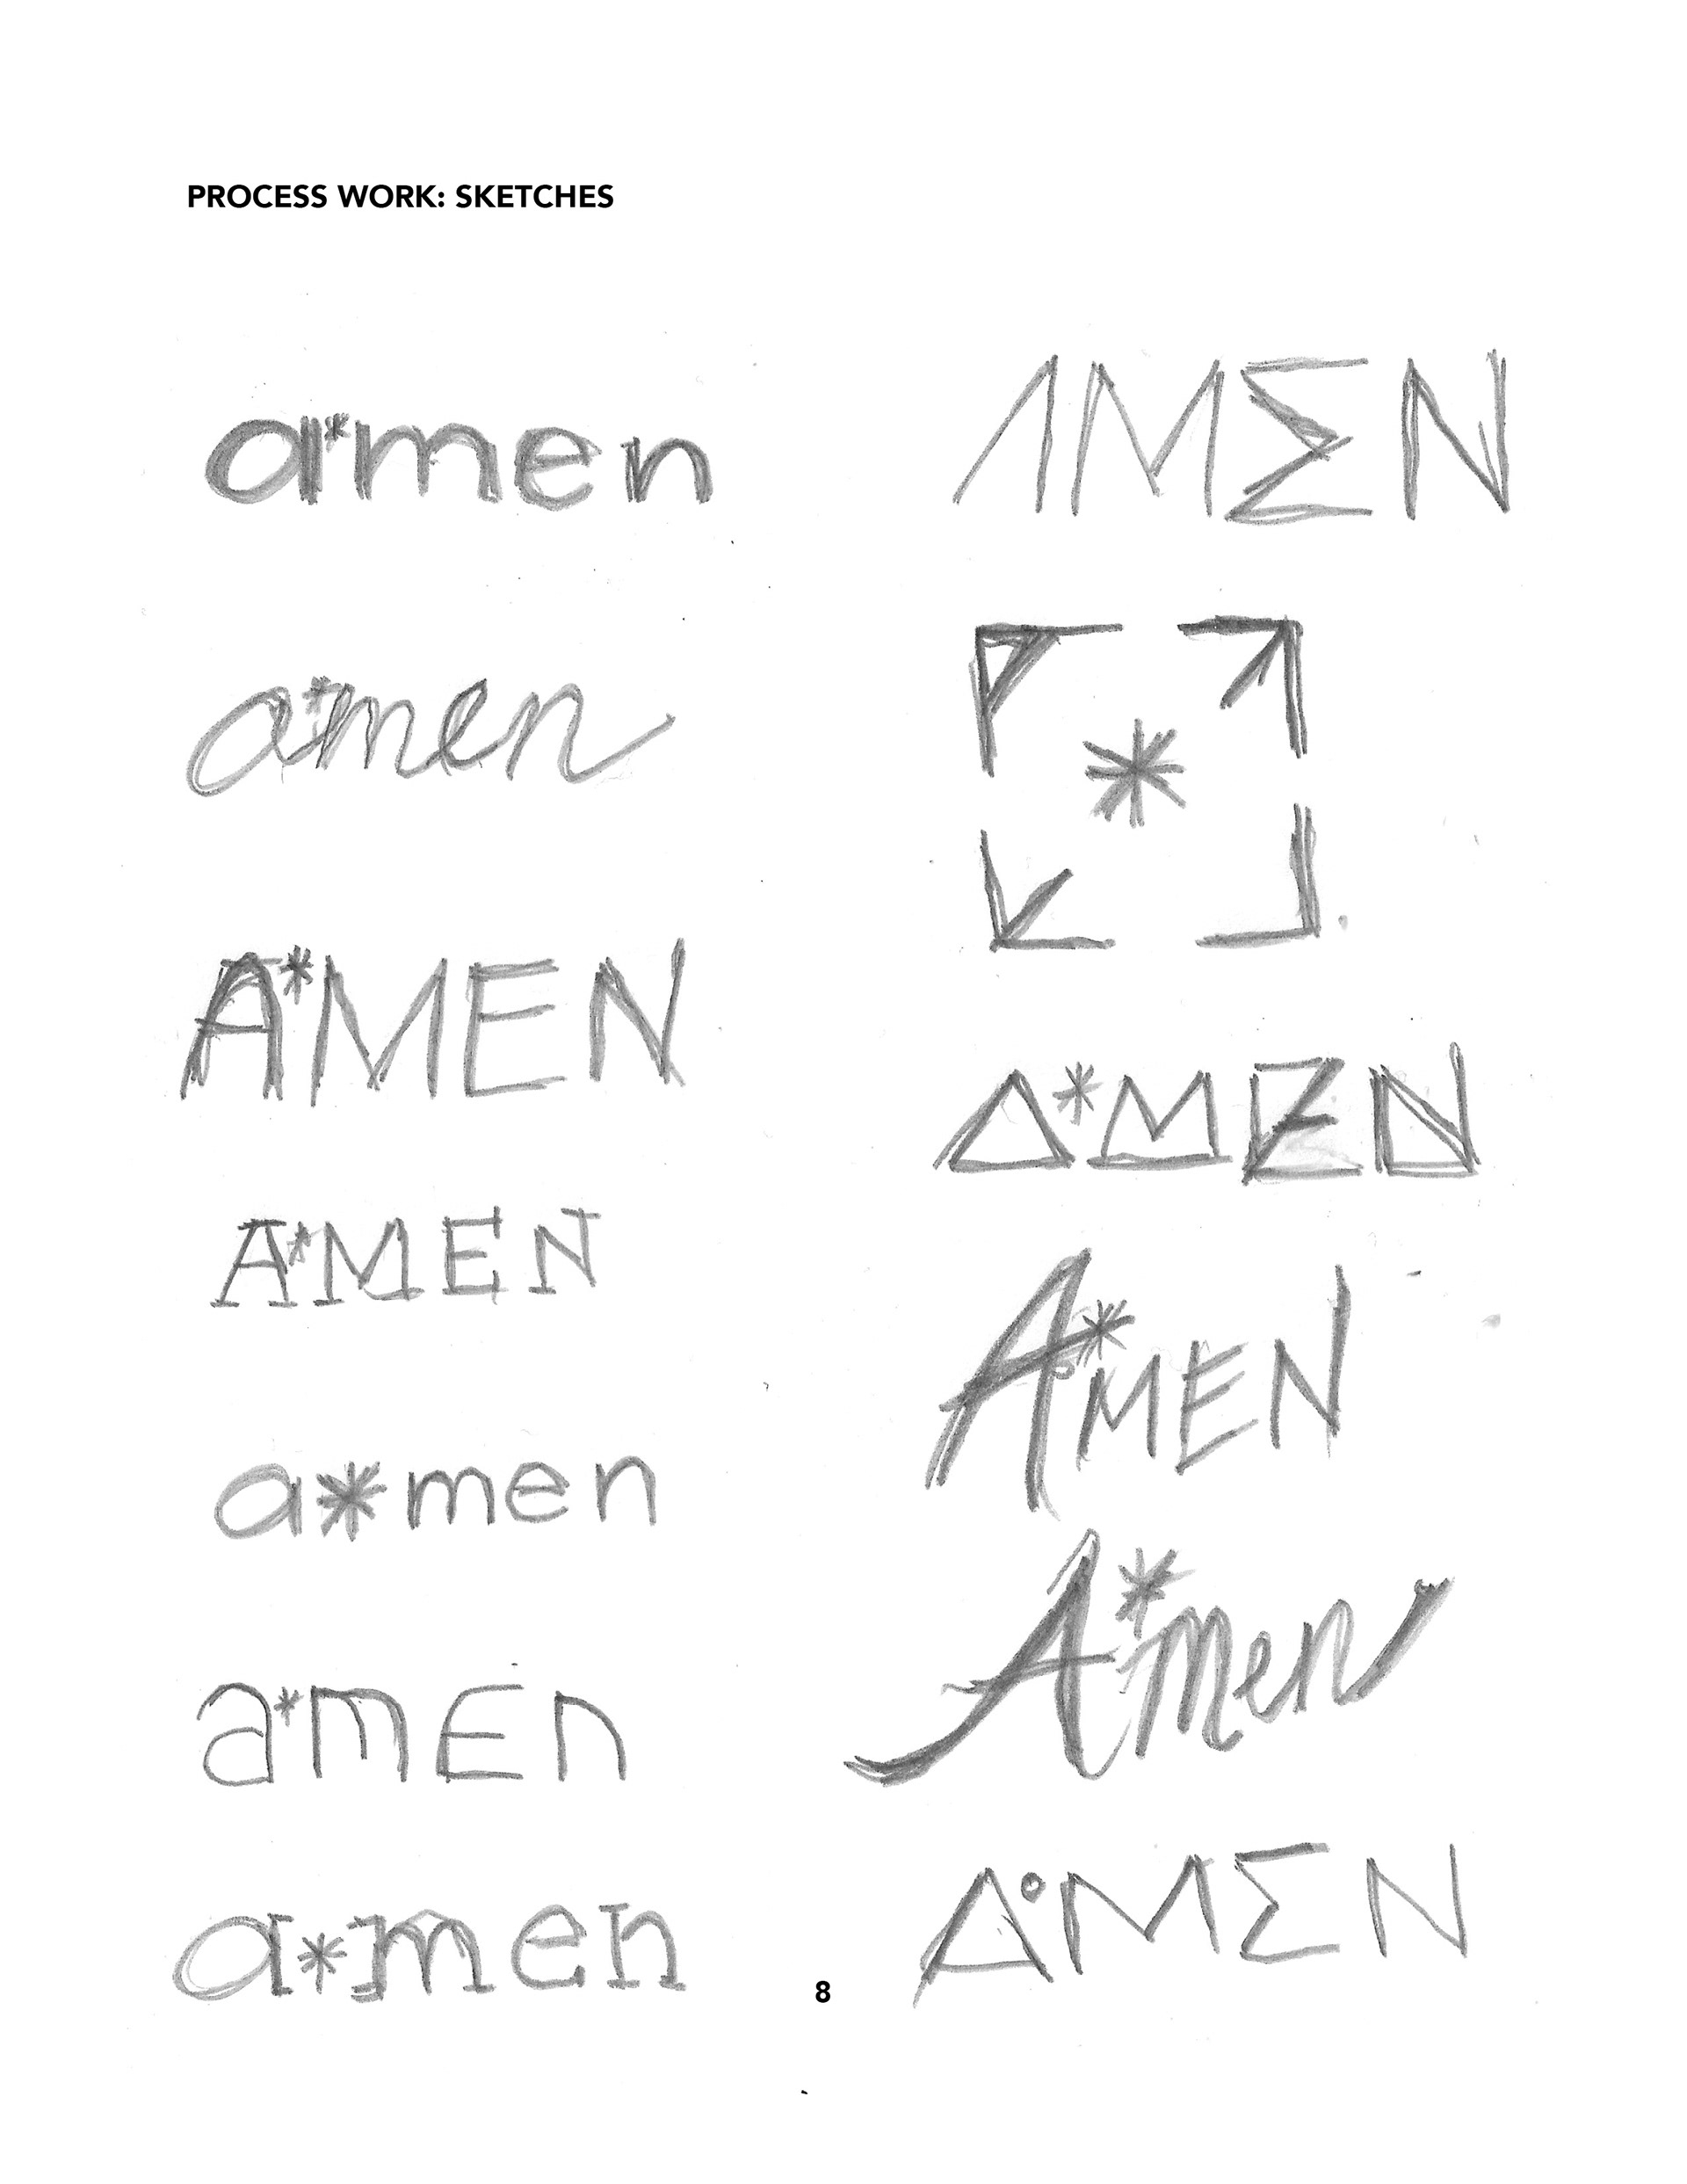 PROCESS WORK: SKETCHES
a*men
a*men
A*MEN
A*MEN
a*men
a*mEn
a*men
ΛMΣN
*
Δ*MEN
A*MEN
A*men
Δ°MΣN
8